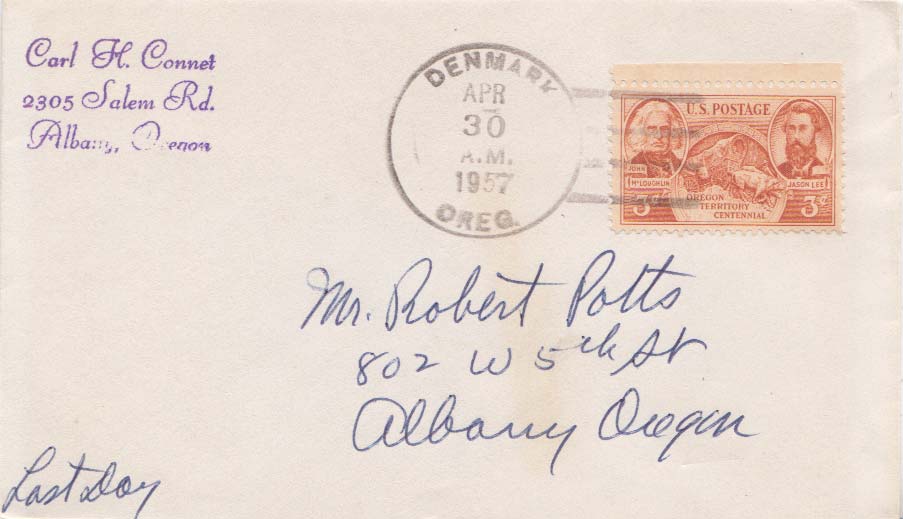 Carl H. Connet
2305 Salem Rd.
Albany, Oregon
DENMARK
APR
30
A.M.
1957
OREG.
U.S. POSTAGE
JOHN
McLOUGHLIN
JASON LEE
OREGON
TERRITORY
CENTENNIAL
3¢
3¢
Mr. Robert Potts
802 W 5th St
Albany Oregon
Last Day